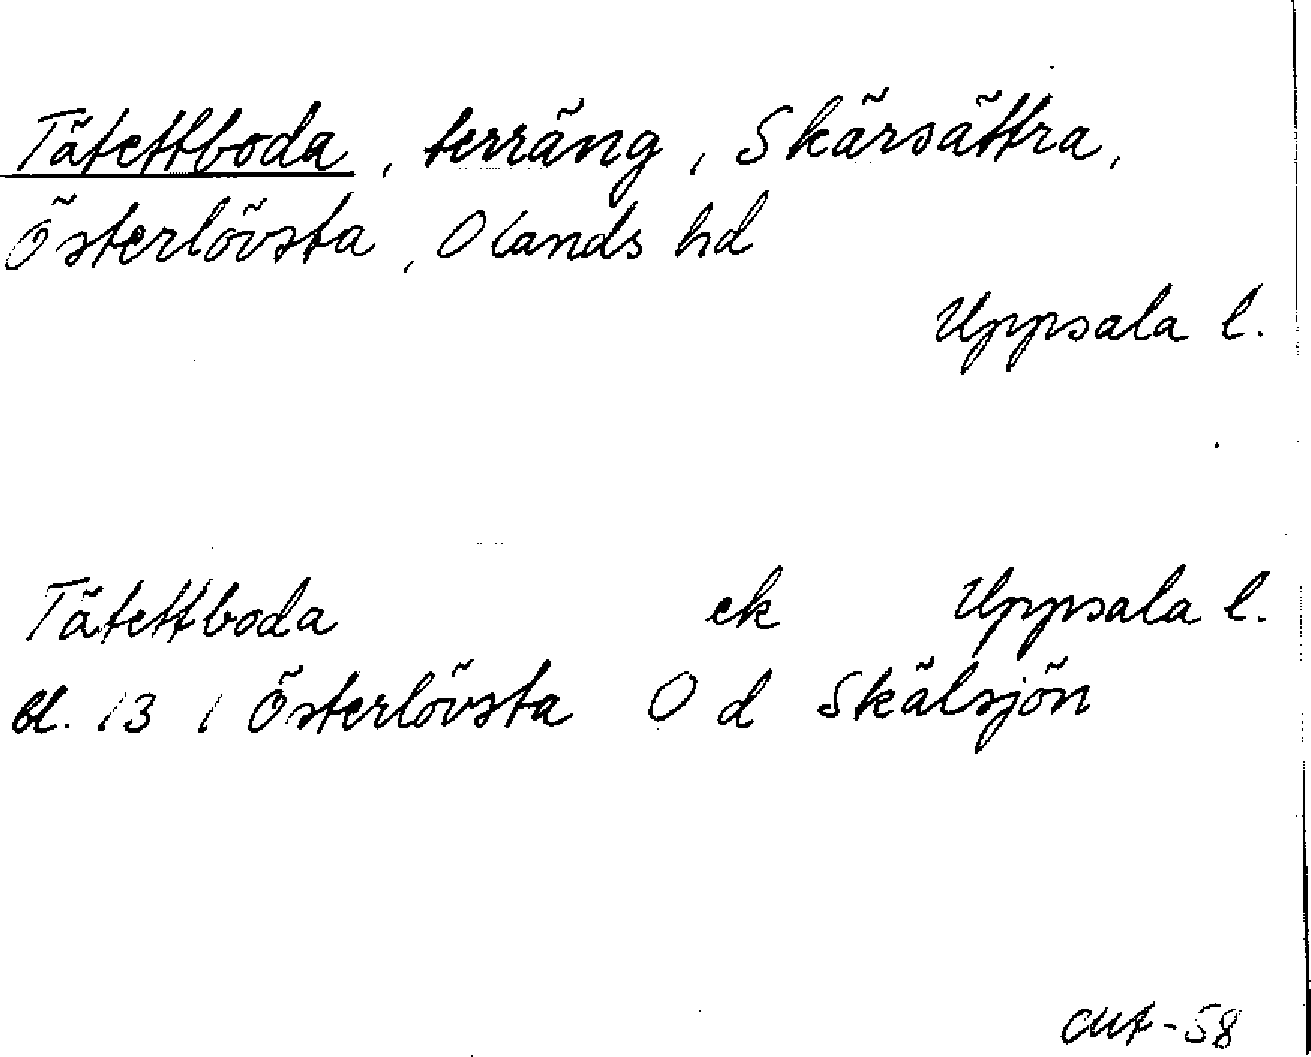 Tätettboda, terräng, Skärsättra,
Österlövsta, Olands hd
Uppsala l.
Tätettboda ek Uppsala l.
bl. 13 I Österlövsta O d Skälsjön
-58